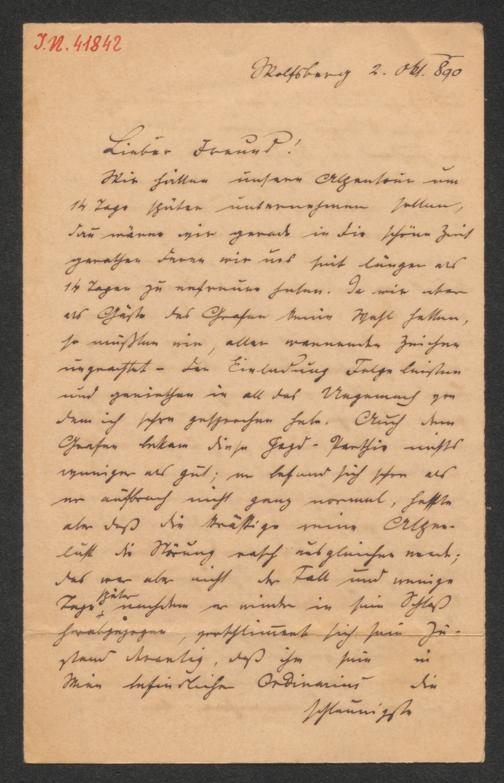 I.N. 41842
Wolfsberg 2. Okt. 890
Lieber Freund!
Wir hätten unsere Alpentour um
14 Tage später unternehmen sollen,
dan wären wir gerade in die schöne Zeit
gerathen deren wir uns seit länger als
14 Tagen zu erfreuen haben. Da wir aber
als Gäste des Grafen keine Wahl hatten,
so mußten wir, aller warnenden Zeichen
ungeachtet – der Einladung Folge leisten
und geriethen in all das Ungemach von
dem ich schon gesprochen habe. Auch dem
Grafen bekam diese Jagd-Parthie nichts
weniger als gut; er befand sich schon als
er aufbrach nicht ganz normal, hoffte
aber daß die kräftige reine Alpen-
luft die Störung rasch ausgleichen werde;
das war aber nicht der Fall und wenige
Tage später nachdem er wieder in sein Schloß
herabgezogen, verschlimmert sich sein Zu-
stand derartig, daß ihm sein in
Wien befindlicher Ordinarius die
schleunigste